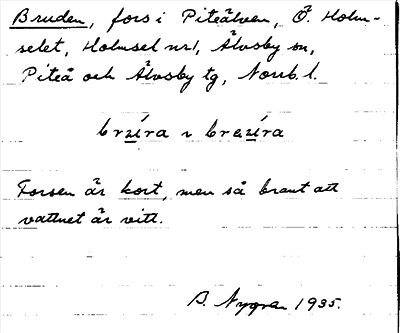 Bruden, fors i Piteälven, Ö. Holm-
selet, Holmsel nr 1, Älvsby sn,
Piteå och Älvsby tg, Norrb. l.
Forsen är kort, men så brant att
vattnet är vitt.
B. Nygren 1935.